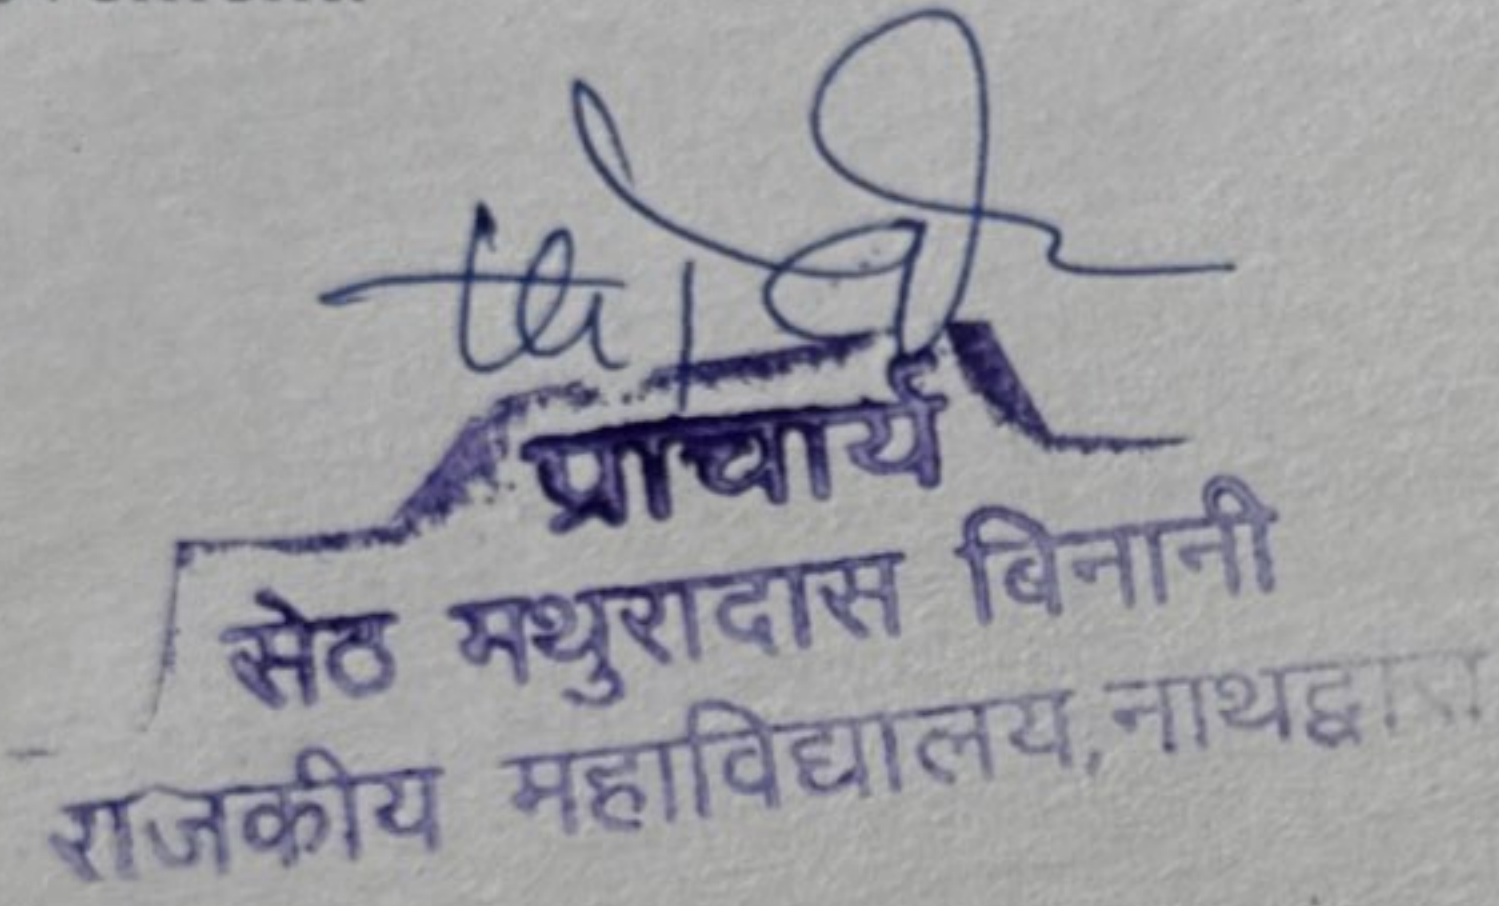 प्राचार्य
सेठ मथुरादास बिनानी
राजकीय महाविद्यालय,नाथद्वारा